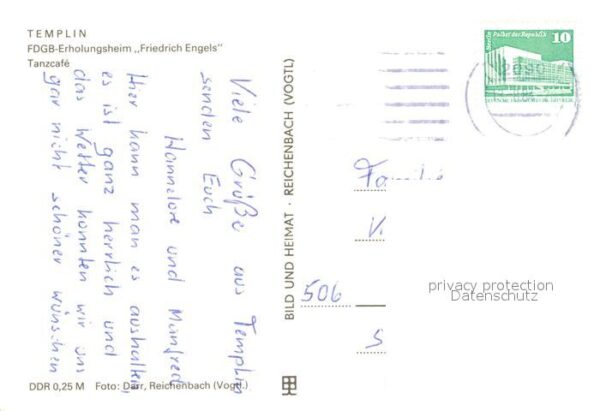 TEMPLIN
FDGB-Erholungsheim „Friedrich Engels"
Tanzcafé
Viele Grüße aus Templin
senden Euch
Hannelore und Manfred
Hier kann man es aushalten,
es ist ganz herrlich und
das Wetter konnten wir uns
gar nicht schöner wünschen
DDR 0,25 M Foto: Darr, Reichenbach (Vogtl.)
BILD UND HEIMAT · REICHENBACH (VOGTL)
10
Berlin, Palast der Republik
Fa
V.
506
S
privacy protection
Datenschutz